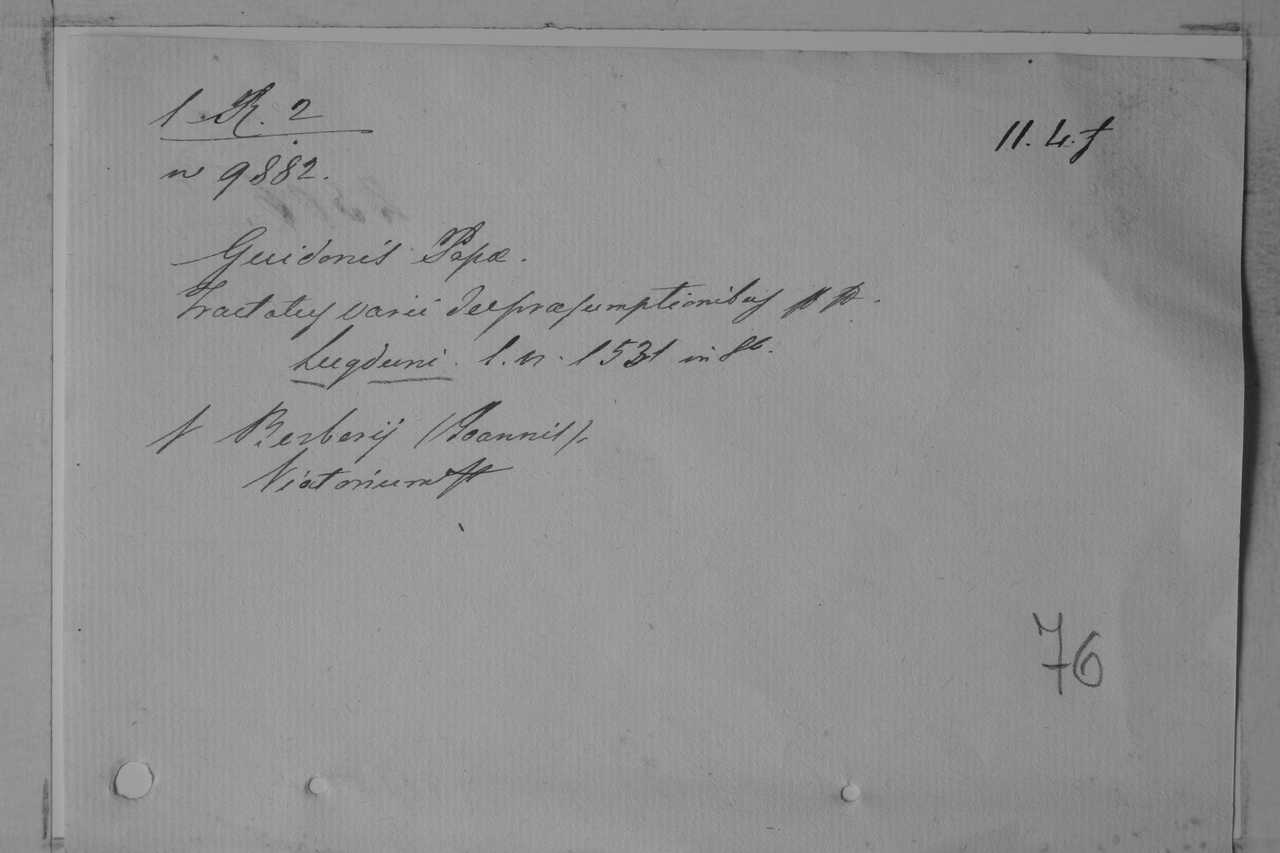 1 R. 2
11. 4. f
n 9882.
Guidonis Papæ.
Tractatus varii de præsumptionibus pp.
Lugduni. l. n. 1531 in 8º.
Berberij (Joannis).
Viatorium
76